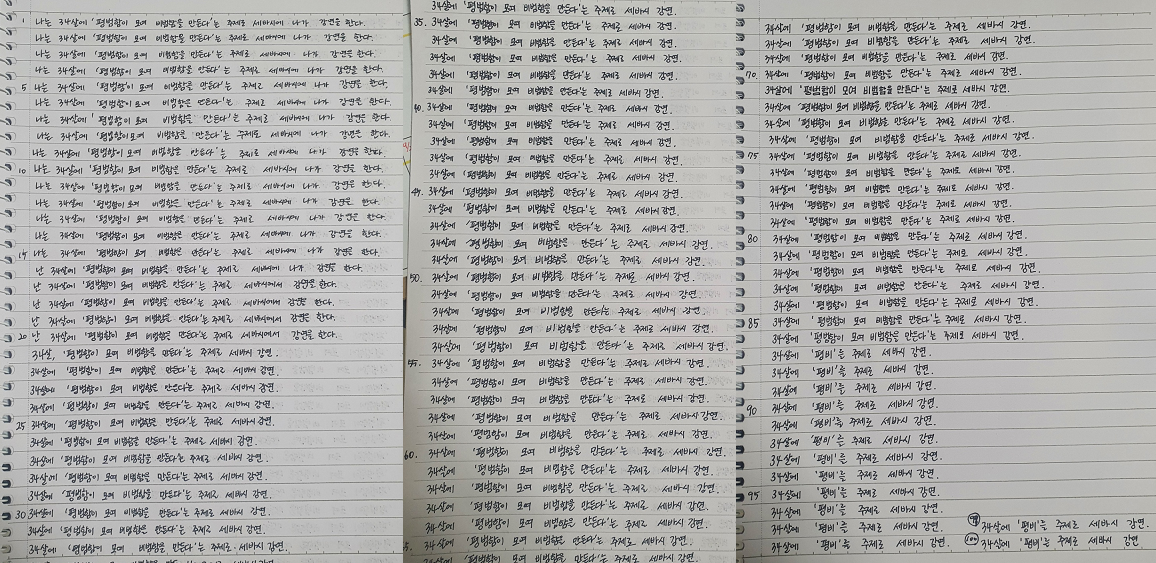 1 나는 34살에 '평범함이 모여 비범함을 만든다'는 주제로 세바시에 나가 강연을 한다.
나는 34살에 '평범함이 모여 비범함을 만든다'는 주제로 세바시에 나가 강연을 한다.
나는 34살에 '평범함이 모여 비범함을 만든다'는 주제로 세바시에 나가 강연을 한다.
나는 34살에 '평범함이 모여 비범함을 만든다'는 주제로 세바시에 나가 강연을 한다.
5 나는 34살에 '평범함이 모여 비범함을 만든다'는 주제로 세바시에 나가 강연을 한다.
나는 34살에 '평범함이 모여 비범함을 만든다'는 주제로 세바시에 나가 강연을 한다.
나는 34살에 '평범함이 모여 비범함을 만든다'는 주제로 세바시에 나가 강연을 한다.
나는 34살에 '평범함이 모여 비범함을 만든다'는 주제로 세바시에 나가 강연을 한다.
나는 34살에 '평범함이 모여 비범함을 만든다'는 주제로 세바시에 나가 강연을 한다.
10 나는 34살에 '평범함이 모여 비범함을 만든다'는 주제로 세바시에 나가 강연을 한다.
나는 34살에 '평범함이 모여 비범함을 만든다'는 주제로 세바시에 나가 강연을 한다.
나는 34살에 '평범함이 모여 비범함을 만든다'는 주제로 세바시에 나가 강연을 한다.
나는 34살에 '평범함이 모여 비범함을 만든다'는 주제로 세바시에 나가 강연을 한다.
나는 34살에 '평범함이 모여 비범함을 만든다'는 주제로 세바시에 나가 강연을 한다.
15 나는 34살에 '평범함이 모여 비범함을 만든다'는 주제로 세바시에 나가 강연을 한다.
난 34살에 '평범함이 모여 비범함을 만든다'는 주제로 세바시에 나가 강연을 한다.
난 34살에 '평범함이 모여 비범함을 만든다'는 주제로 세바시에서 강연을 한다.
난 34살에 '평범함이 모여 비범함을 만든다'는 주제로 세바시에서 강연을 한다.
난 34살에 '평범함이 모여 비범함을 만든다'는 주제로 세바시에서 강연을 한다.
20 난 34살에 '평범함이 모여 비범함을 만든다'는 주제로 세바시에서 강연을 한다.
34살, '평범함이 모여 비범함을 만든다'는 주제로 세바시 강연.
34살에 '평범함이 모여 비범함을 만든다'는 주제로 세바시 강연.
34살에 '평범함이 모여 비범함을 만든다'는 주제로 세바시 강연.
34살에 '평범함이 모여 비범함을 만든다'는 주제로 세바시 강연.
25 34살에 '평범함이 모여 비범함을 만든다'는 주제로 세바시 강연.
34살에 '평범함이 모여 비범함을 만든다'는 주제로 세바시 강연.
34살에 '평범함이 모여 비범함을 만든다'는 주제로 세바시 강연.
34살에 '평범함이 모여 비범함을 만든다'는 주제로 세바시 강연.
34살에 '평범함이 모여 비범함을 만든다'는 주제로 세바시 강연.
30 34살에 '평범함이 모여 비범함을 만든다'는 주제로 세바시 강연.
34살에 '평범함이 모여 비범함을 만든다'는 주제로 세바시 강연.
34살에 '평범함이 모여 비범함을 만든다'는 주제로 세바시 강연.
34살에 '평범함이 모여 비범함을 만든다'는 주제로 세바시 강연.
35. 34살에 '평범함이 모여 비범함을 만든다'는 주제로 세바시 강연.
34살에 '평범함이 모여 비범함을 만든다'는 주제로 세바시 강연.
34살에 '평범함이 모여 비범함을 만든다'는 주제로 세바시 강연.
34살에 '평범함이 모여 비범함을 만든다'는 주제로 세바시 강연.
34살에 '평범함이 모여 비범함을 만든다'는 주제로 세바시 강연.
40. 34살에 '평범함이 모여 비범함을 만든다'는 주제로 세바시 강연.
34살에 '평범함이 모여 비범함을 만든다'는 주제로 세바시 강연.
34살에 '평범함이 모여 비범함을 만든다'는 주제로 세바시 강연.
34살에 '평범함이 모여 비범함을 만든다'는 주제로 세바시 강연.
34살에 '평범함이 모여 비범함을 만든다'는 주제로 세바시 강연.
45. 34살에 '평범함이 모여 비범함을 만든다'는 주제로 세바시 강연.
34살에 '평범함이 모여 비범함을 만든다'는 주제로 세바시 강연.
34살에 '평범함이 모여 비범함을 만든다'는 주제로 세바시 강연.
34살에 '평범함이 모여 비범함을 만든다'는 주제로 세바시 강연.
34살에 '평범함이 모여 비범함을 만든다'는 주제로 세바시 강연.
50. 34살에 '평범함이 모여 비범함을 만든다'는 주제로 세바시 강연.
34살에 '평범함이 모여 비범함을 만든다'는 주제로 세바시 강연.
34살에 '평범함이 모여 비범함을 만든다'는 주제로 세바시 강연.
34살에 '평범함이 모여 비범함을 만든다'는 주제로 세바시 강연.
34살에 '평범함이 모여 비범함을 만든다'는 주제로 세바시 강연.
55. 34살에 '평범함이 모여 비범함을 만든다'는 주제로 세바시 강연.
34살에 '평범함이 모여 비범함을 만든다'는 주제로 세바시 강연.
34살에 '평범함이 모여 비범함을 만든다'는 주제로 세바시 강연.
34살에 '평범함이 모여 비범함을 만든다'는 주제로 세바시 강연.
34살에 '평범함이 모여 비범함을 만든다'는 주제로 세바시 강연.
60. 34살에 '평범함이 모여 비범함을 만든다'는 주제로 세바시 강연.
34살에 '평범함이 모여 비범함을 만든다'는 주제로 세바시 강연.
34살에 '평범함이 모여 비범함을 만든다'는 주제로 세바시 강연.
34살에 '평범함이 모여 비범함을 만든다'는 주제로 세바시 강연.
34살에 '평범함이 모여 비범함을 만든다'는 주제로 세바시 강연.
5. 34살에 '평범함이 모여 비범함을 만든다'는 주제로 세바시 강연.
34살에 '평범함이 모여 비범함을 만든다'는 주제로 세바시 강연.
34살에 '평범함이 모여 비범함을 만든다'는 주제로 세바시 강연.
34살에 '평범함이 모여 비범함을 만든다'는 주제로 세바시 강연.
34살에 '평범함이 모여 비범함을 만든다'는 주제로 세바시 강연.
70. 34살에 '평범함이 모여 비범함을 만든다'는 주제로 세바시 강연.
34살에 '평범함이 모여 비범함을 만든다'는 주제로 세바시 강연.
34살에 '평범함이 모여 비범함을 만든다'는 주제로 세바시 강연.
34살에 '평범함이 모여 비범함을 만든다'는 주제로 세바시 강연.
34살에 '평범함이 모여 비범함을 만든다'는 주제로 세바시 강연.
75 34살에 '평범함이 모여 비범함을 만든다'는 주제로 세바시 강연.
34살에 '평범함이 모여 비범함을 만든다'는 주제로 세바시 강연.
34살에 '평범함이 모여 비범함을 만든다'는 주제로 세바시 강연.
34살에 '평범함이 모여 비범함을 만든다'는 주제로 세바시 강연.
34살에 '평범함이 모여 비범함을 만든다'는 주제로 세바시 강연.
80 34살에 '평범함이 모여 비범함을 만든다'는 주제로 세바시 강연.
34살에 '평범함이 모여 비범함을 만든다'는 주제로 세바시 강연.
34살에 '평범함이 모여 비범함을 만든다'는 주제로 세바시 강연.
34살에 '평범함이 모여 비범함을 만든다'는 주제로 세바시 강연.
34살에 '평범함이 모여 비범함을 만든다'는 주제로 세바시 강연.
85 34살에 '평범함이 모여 비범함을 만든다'는 주제로 세바시 강연.
34살에 '평범함이 모여 비범함을 만든다'는 주제로 세바시 강연.
34살에 '평비'를 주제로 세바시 강연.
34살에 '평비'를 주제로 세바시 강연.
34살에 '평비'를 주제로 세바시 강연.
90 34살에 '평비'를 주제로 세바시 강연.
34살에 '평비'를 주제로 세바시 강연.
34살에 '평비'를 주제로 세바시 강연.
34살에 '평비'를 주제로 세바시 강연.
34살에 '평비'를 주제로 세바시 강연.
95 34살에 '평비'를 주제로 세바시 강연.
34살에 '평비'를 주제로 세바시 강연.
34살에 '평비'를 주제로 세바시 강연.
34살에 '평비'를 주제로 세바시 강연.
99 34살에 '평비'를 주제로 세바시 강연.
100 34살에 '평비'를 주제로 세바시 강연.